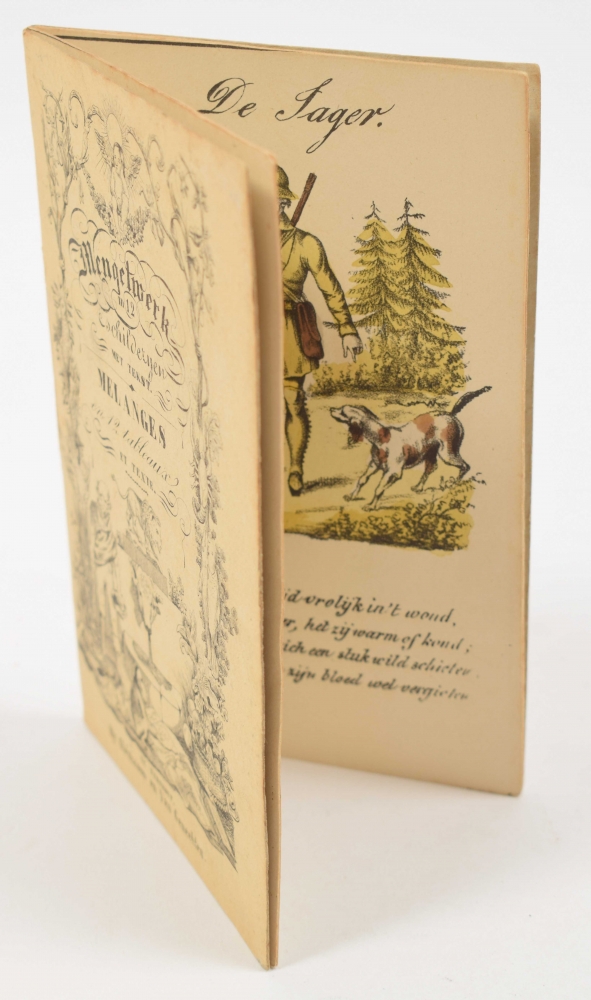 Mengelwerk
in 12
Schilderyen
MET TEKST
MELANGES
en 12 tableaux
ET TEXTE
De Jager.
vrolijk in't woud,
het zij warm of koud;
een stuk wild schieten
zijn bloed wel vergieten